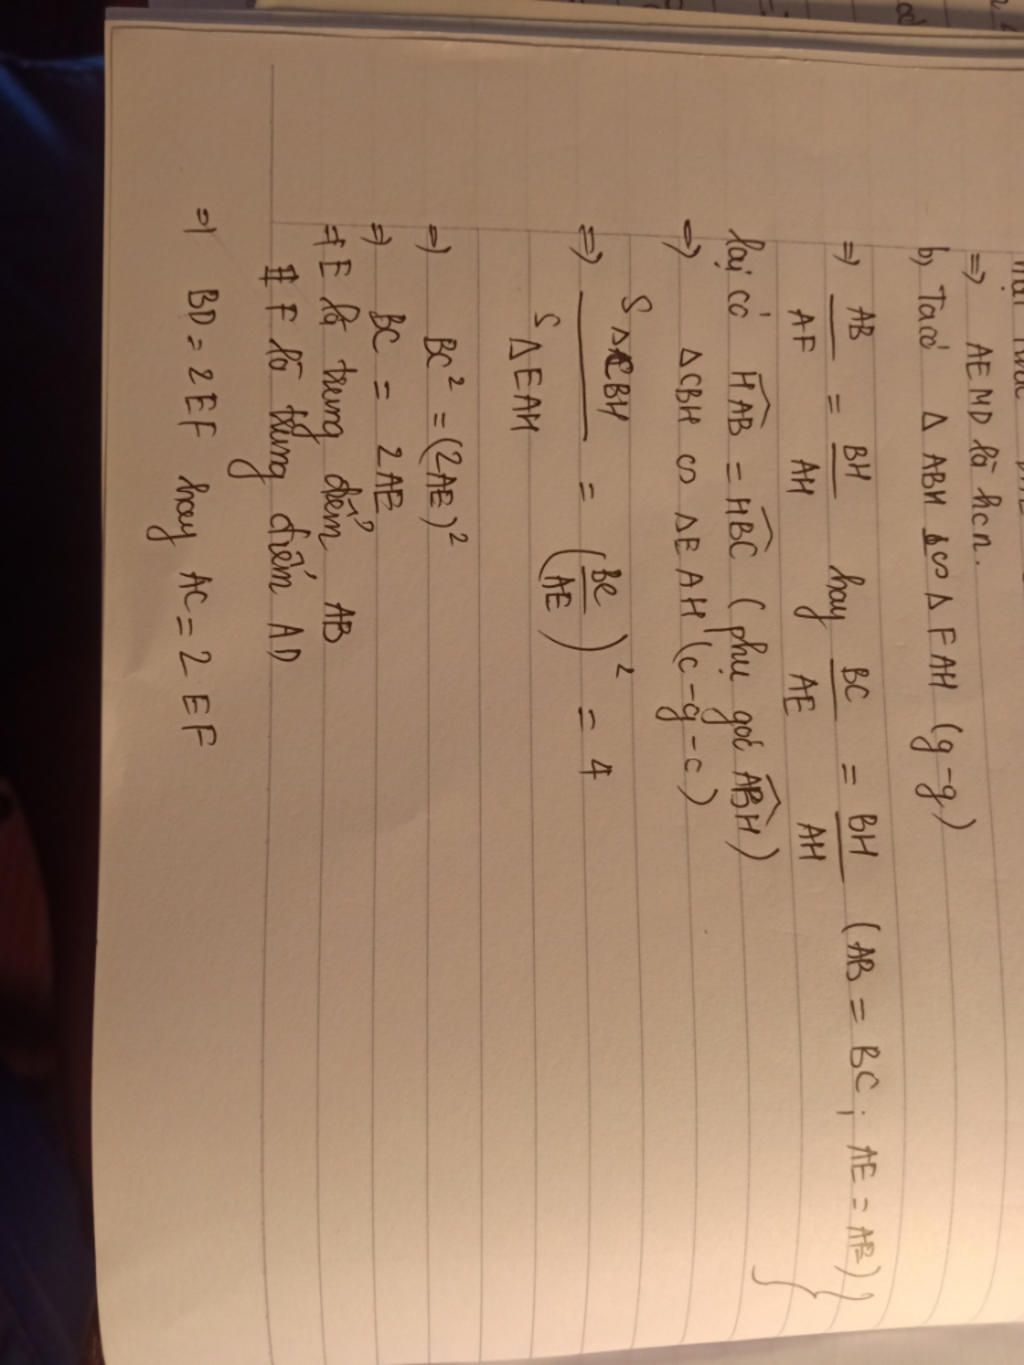 => AEMD là hcn.
b) Ta có Δ ABH ∽ Δ FAH (g-g)
=> AB/AF = BH/AH hay BC/AE = BH/AH (AB = BC; AE = AF)
lại có HAB = HBC (phụ góc ABH)
=> ΔCBH ∽ ΔEAH (c-g-c)
=> SΔCBH/SΔEAH = (BC/AE)² = 4
=> BC² = (2AE)²
=> BC = 2AE
=> E là trung điểm AB
F là trung điểm AD
=> BD = 2EF hay AC = 2EF